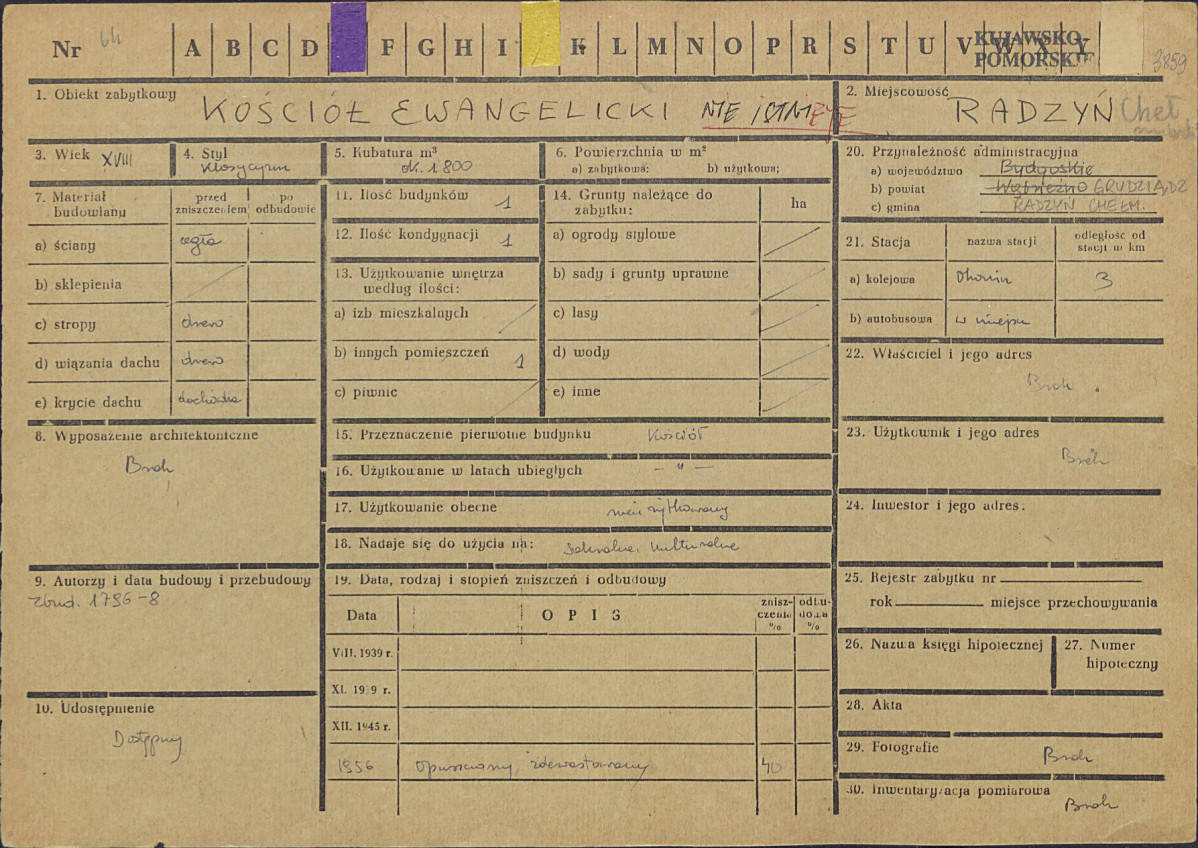 Nr 64 A B C D F G H I K L M N O P R S T U V W X Y
KUJAWSKO-
POMORSKIE
3859
1. Obiekt zabytkowy
KOŚCIÓŁ EWANGELICKI NIE ISTNIEJE
2. Miejscowość
RADZYŃ Cheł
3. Wiek XVIII
4. Styl
klasycyzm
5. Kubatura m³
ok. 1800
6. Powierzchnia w m²
a) zabytkowa: b) użytkowa;
7. Materiał budowlany
przed zniszczeniem
po odbudowie
a) ściany cegła
b) sklepienia
c) stropy drewo
d) wiązania dachu drewo
e) krycie dachu dachówka
8. Wyposażenie architektoniczne
Brak
9. Autorzy i data budowy i przebudowy
zbud. 1796-8
10. Udostępnienie
Dostępny
11. Ilość budynków 1
12. Ilość kondygnacji 1
13. Użytkowanie wnętrza
według ilości:
a) izb mieszkalnych
b) innych pomieszczeń 1
c) piwnic
14. Grunty należące do
zabytku:
ha
a) ogrody stylowe
b) sady i grunty uprawne
c) lasy
d) wody
e) inne
15. Przeznaczenie pierwotne budynku kościół
16. Użytkowanie w latach ubiegłych - " -
17. Użytkowanie obecne nieużytkowany
18. Nadaje się do użycia na: sakralne, kulturalne
19. Data, rodzaj i stopień zniszczeń i odbudowy
Data
OPIS
znisz-
czenia
%
odbu-
dowa
%
VIII. 1939 r.
XI. 1939 r.
XII. 1945 r.
1956 opuszczony, zdewastowany 40
20. Przynależność administracyjna
a) województwo Bydgoskie
b) powiat Wąbrzeźno GRUDZIĄDZ
c) gmina RADZYŃ CHEŁM.
21. Stacja
nazwa stacji
odległość od
stacji w km
a) kolejowa 3
b) autobusowa w miejscu
22. Właściciel i jego adres
Brak
23. Użytkownik i jego adres
Brak
24. Inwestor i jego adres:
25. Rejestr zabytku nr
rok miejsce przechowywania
26. Nazwa księgi hipotecznej
27. Numer
hipoteczny
28. Akta
29. Fotografie Brak
30. Inwentaryzacja pomiarowa
Brak